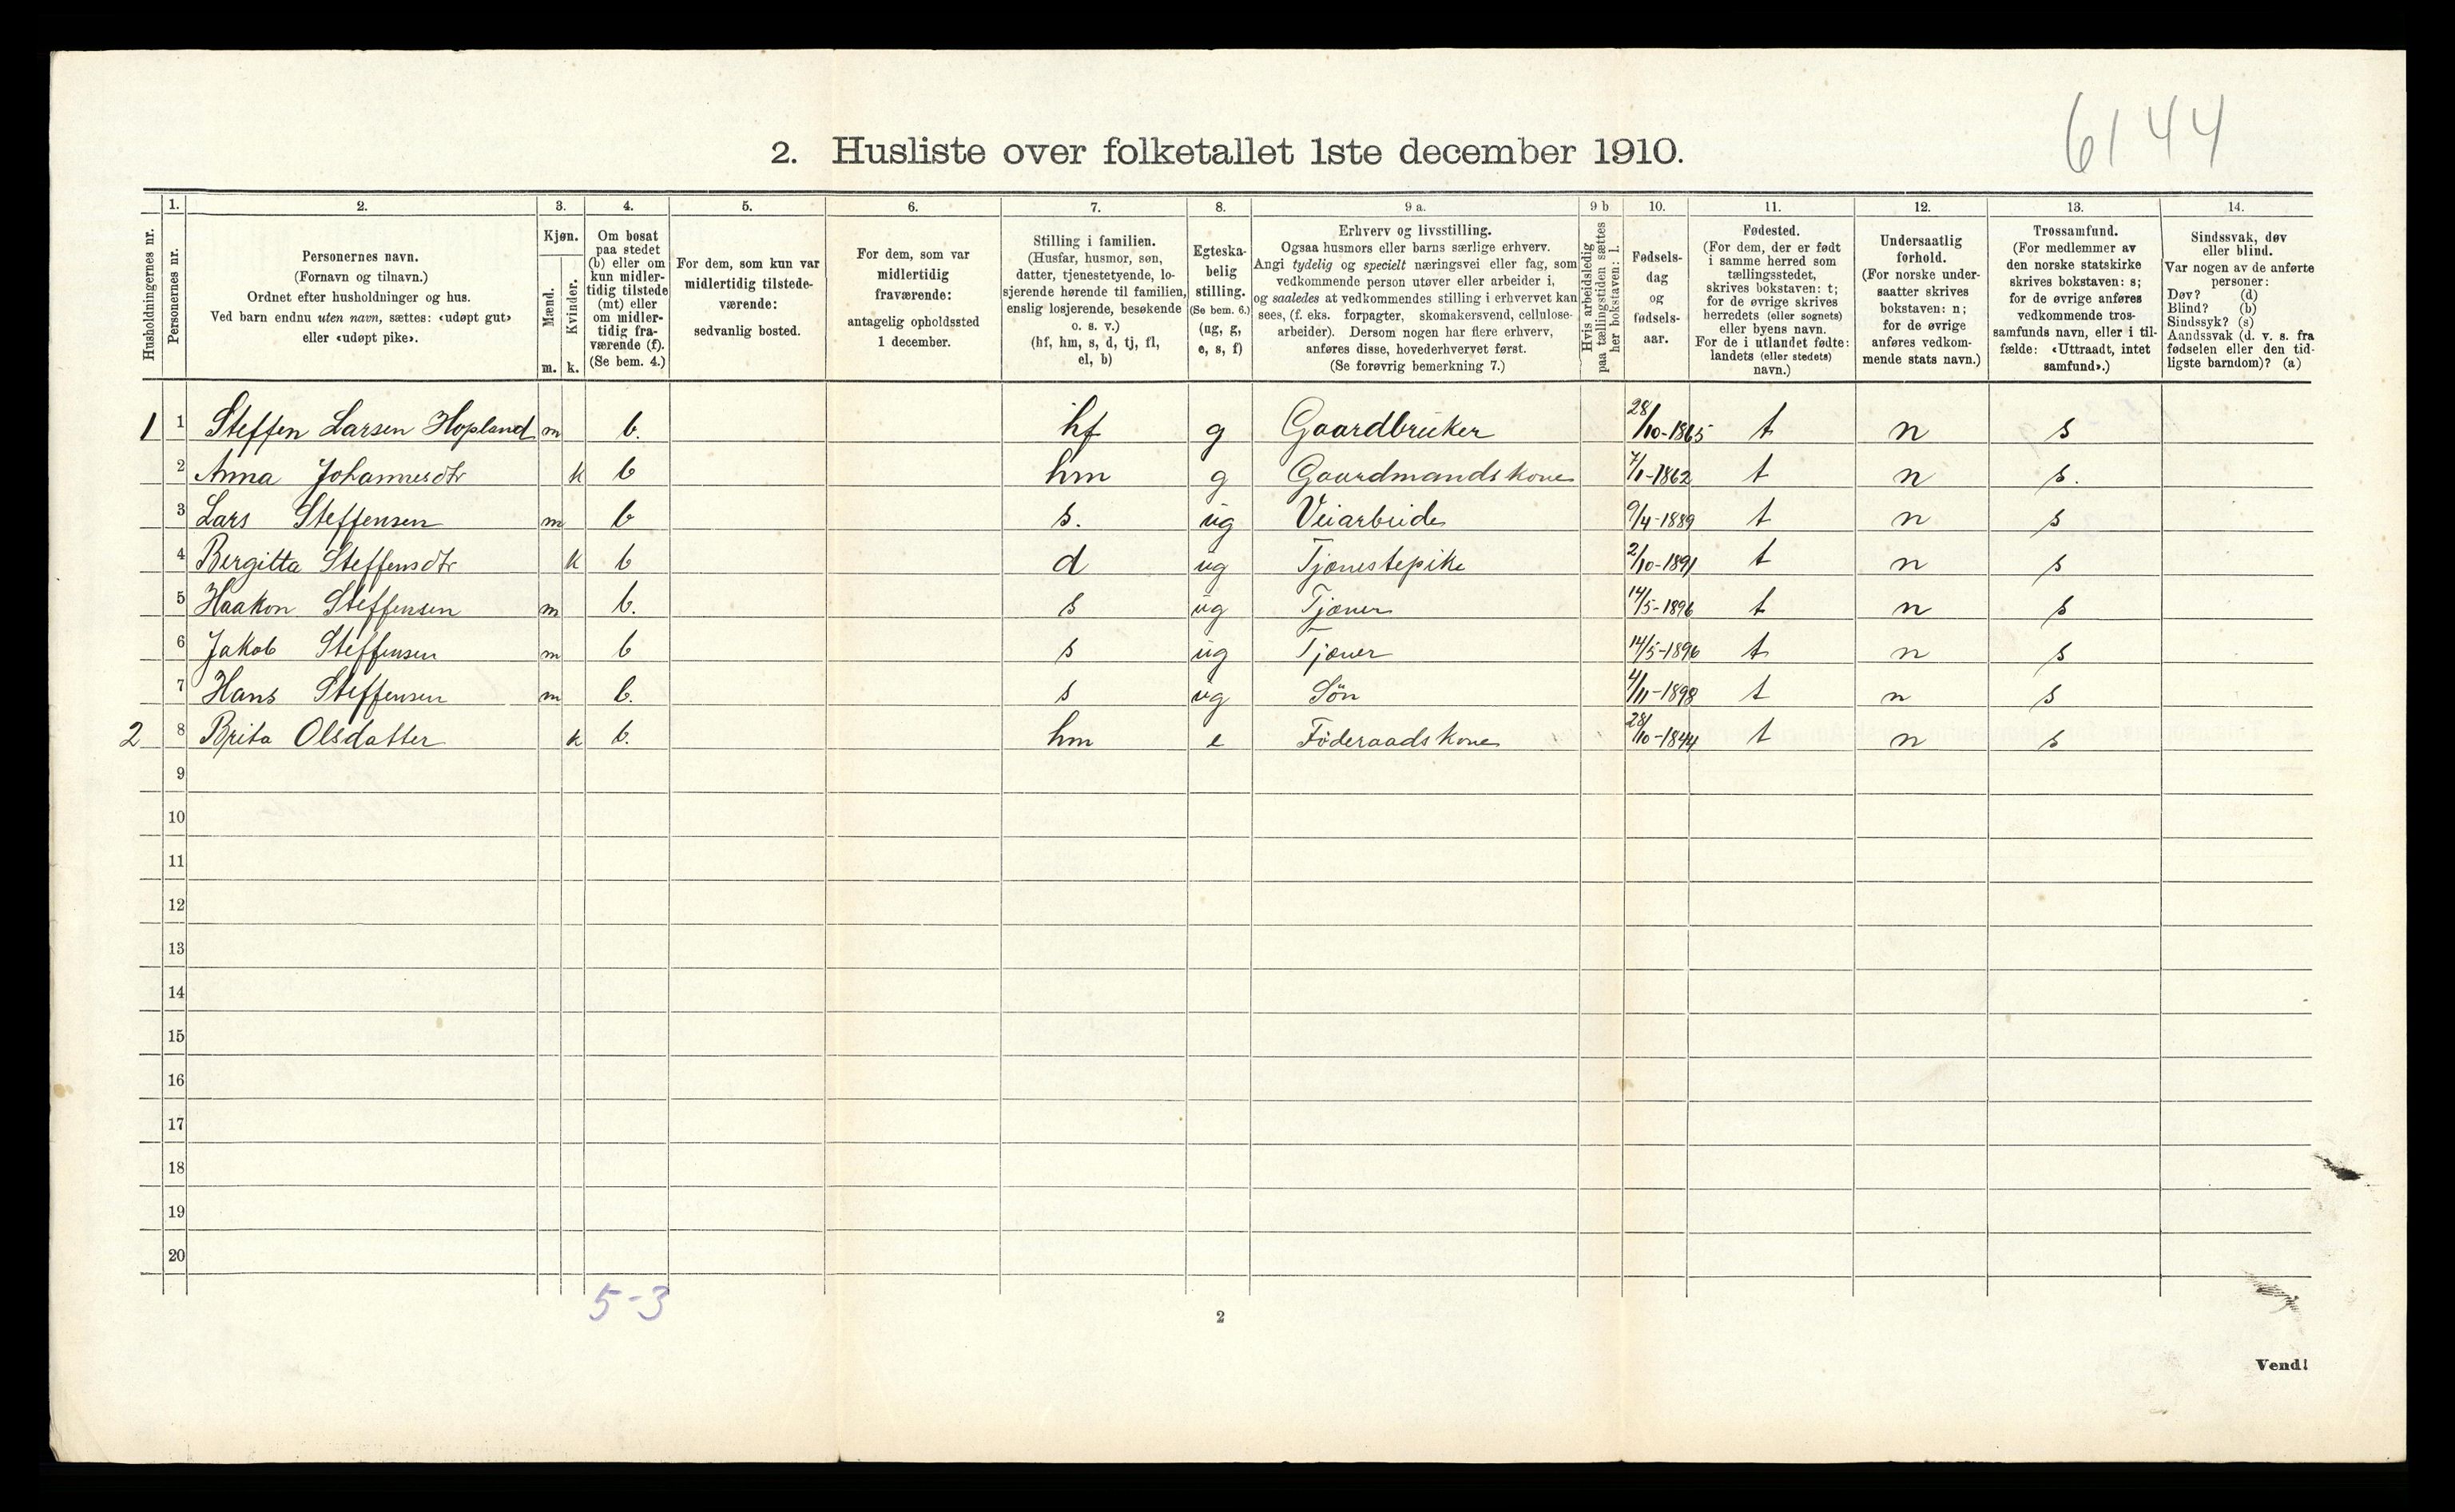 6144
2. Husliste over folketallet 1ste december 1910.
Husholdningernes nr.
1.
Personernes nr.
2.
Personernes navn.
(Fornavn og tilnavn.)
Ordnet efter husholdninger og hus.
Ved barn endnu uten navn, sættes: «udøpt gut»
eller «udøpt pike».
3.
Kjøn.
Mænd.
Kvinder.
m. k.
4.
Om bosat
paa stedet
(b) eller om
kun midler-
tidig tilstede
(mt) eller
om midler-
tidig fra-
værende (f).
(Se bem. 4.)
5.
For dem, som kun var
midlertidig tilstede-
værende:
sedvanlig bosted.
6.
For dem, som var
midlertidig
fraværende:
antagelig opholdssted
1 december.
7.
Stilling i familien.
(Husfar, husmor, søn,
datter, tjenestetyende, lo-
sjerende hørende til familien,
enslig losjerende, besøkende
o. s. v.)
(hf, hm, s, d, tj, fl,
el, b)
8.
Egteska-
belig
stilling.
(Se bem. 6.)
(ug, g,
e, s, f)
9 a.
Erhverv og livsstilling.
Ogsaa husmors eller barns særlige erhverv.
Angi tydelig og specielt næringsvei eller fag, som
vedkommende person utøver eller arbeider i,
og saaledes at vedkommendes stilling i erhvervet kan
sees, (f. eks. forpagter, skomakersvend, cellulose-
arbeider). Dersom nogen har flere erhverv,
anføres disse, hovederhvervet først.
(Se forøvrig bemerkning 7.)
9 b
Hvis arbeidsledig
paa tællingstiden sættes
her bokstaven: l.
10.
Fødsels-
dag
og
fødsels-
aar.
11.
Fødested.
(For dem, der er født
i samme herred som
tællingsstedet,
skrives bokstaven: t;
for de øvrige skrives
herredets (eller sognets)
eller byens navn.
For de i utlandet fødte:
landets (eller stedets)
navn.)
12.
Undersaatlig
forhold.
(For norske under-
saatter skrives
bokstaven: n;
for de øvrige
anføres vedkom-
mende stats navn.)
13.
Trossamfund.
(For medlemmer av
den norske statskirke
skrives bokstaven: s;
for de øvrige anføres
vedkommende tros-
samfunds navn, eller i til-
fælde: «Uttraadt, intet
samfund».)
14.
Sindssvak, døv
eller blind.
Var nogen av de anførte
personer:
Døv? (d)
Blind? (b)
Sindssyk? (s)
Aandssvak (d. v. s. fra
fødselen eller den tid-
ligste barndom)? (a)
1 1 Steffen Larsen Hopland m b. hf g Gaardbruker 28/10-1865 t n s
2 Anna Johannesdtr k b hm g Gaardmandskone 7/1-1862 t n s.
3 Lars Steffensen m b s. ug Veiarbeide 9/4-1889 t n s
4 Bergitta Steffensdtr k b d ug Tjenestepike 2/10-1891 t n s
5 Haakon Steffensen m b. s ug Tjener 14/5-1896 t n s
6 Jakob Steffensen m b s ug Tjener 14/5-1896 t n s
7 Hans Steffensen m b. s ug Søn 4/11-1898 t n s
2 8 Brita Olsdatter k b. hm e Föderaadskone 28/10-1844 t n s
9
10
11
12
13
14
15
16
17
18
19
20
5-3
2
Vend!